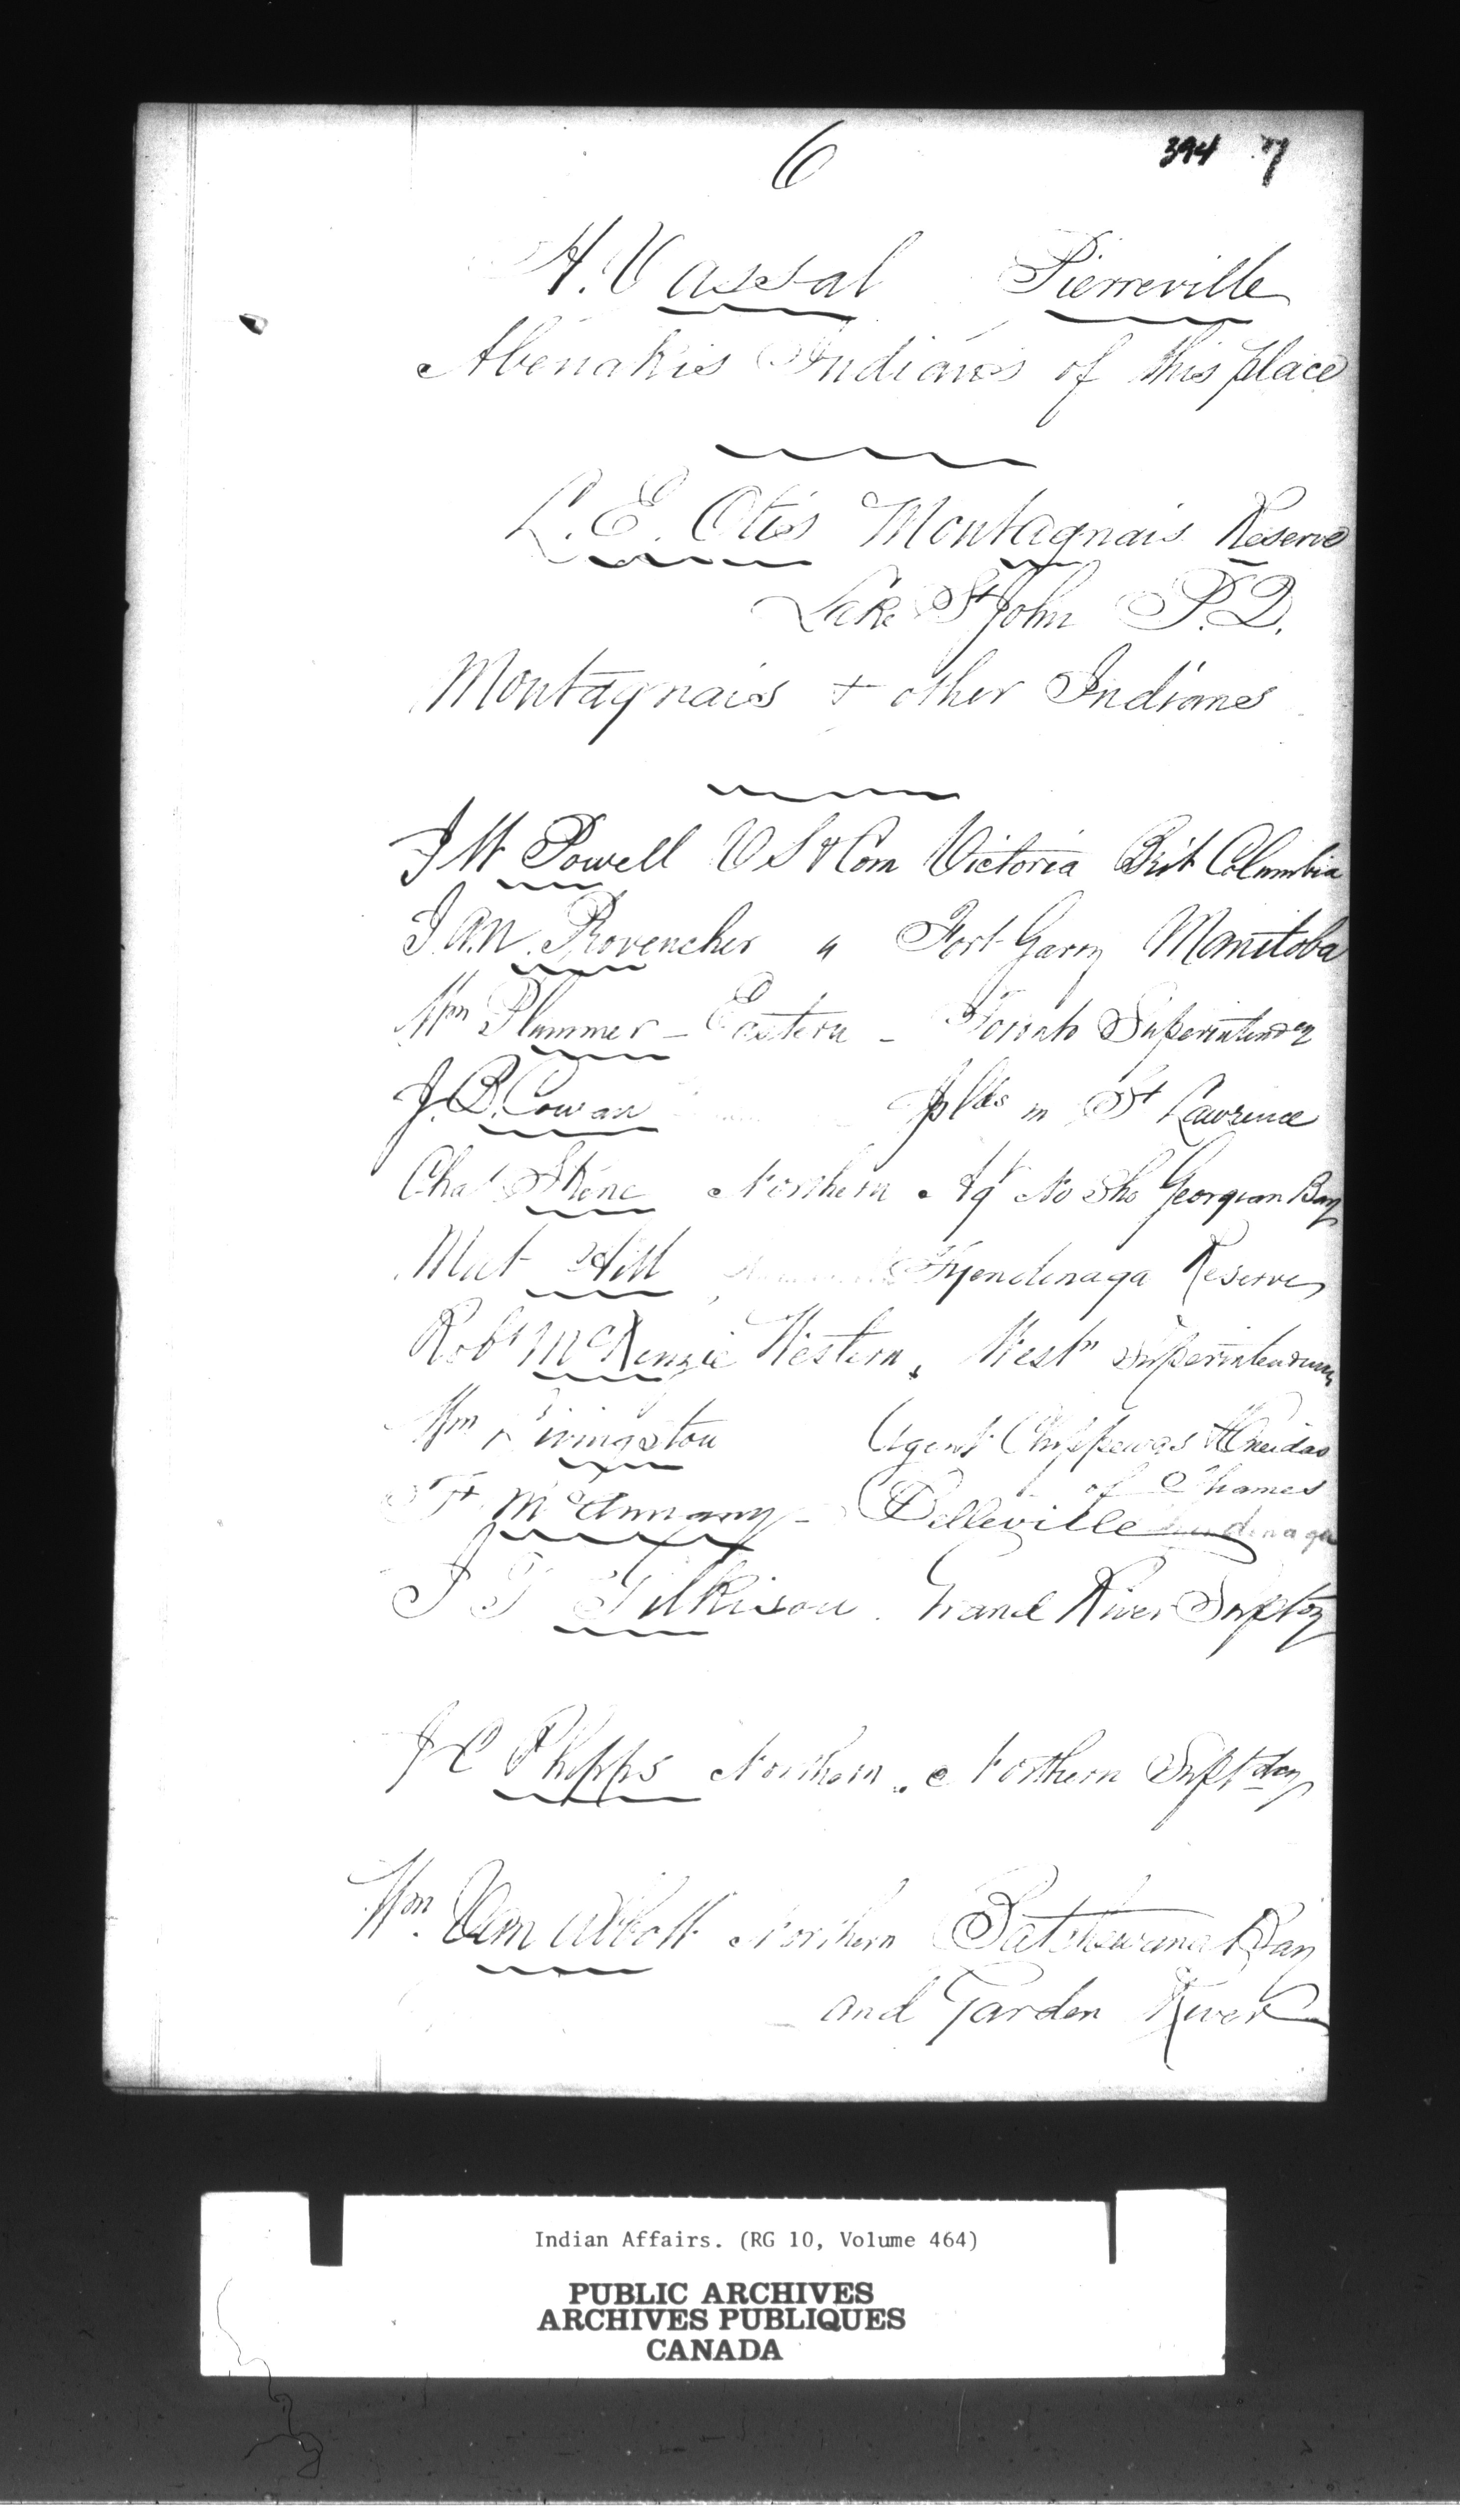 6
394 7
H. Vassal Pierreville
Abenakis Indians of this place
L. E. Otis Montagnais Reserve
Lake St John P.Q.
Montagnais + other Indians
J W Powell V S & Com Victoria Brit Columbia
J A. N. Provencher " Fort Garry Manitoba
Wm Plummer - Eastern - Toronto
J. B. Cowan in St Lawrence
Chas Skene Northern Ag No Sho Georgian Bay
Mat Hill Tyendinaga Reserve
Robt McKenzie Western, Westn
Wm Livingston Agent Chippewas & Oneidas
of Thames
McAnnany - Belleville
J T Gilkison Grand River Suptcy
J C Phipps Northern Northern
Wm Van Abbott Northern Batchewana Bay
and Garden River
Indian Affairs. (RG 10, Volume 464)
PUBLIC ARCHIVES
ARCHIVES PUBLIQUES
CANADA